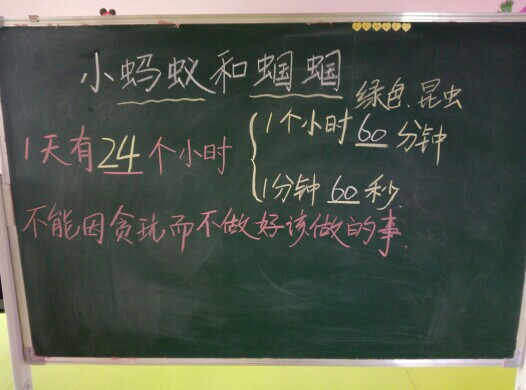 小蚂蚁和蝈蝈
绿色.昆虫
1天有24个小时
1个小时60分钟
1分钟60秒.
不能因贪玩而不做好该做的事.